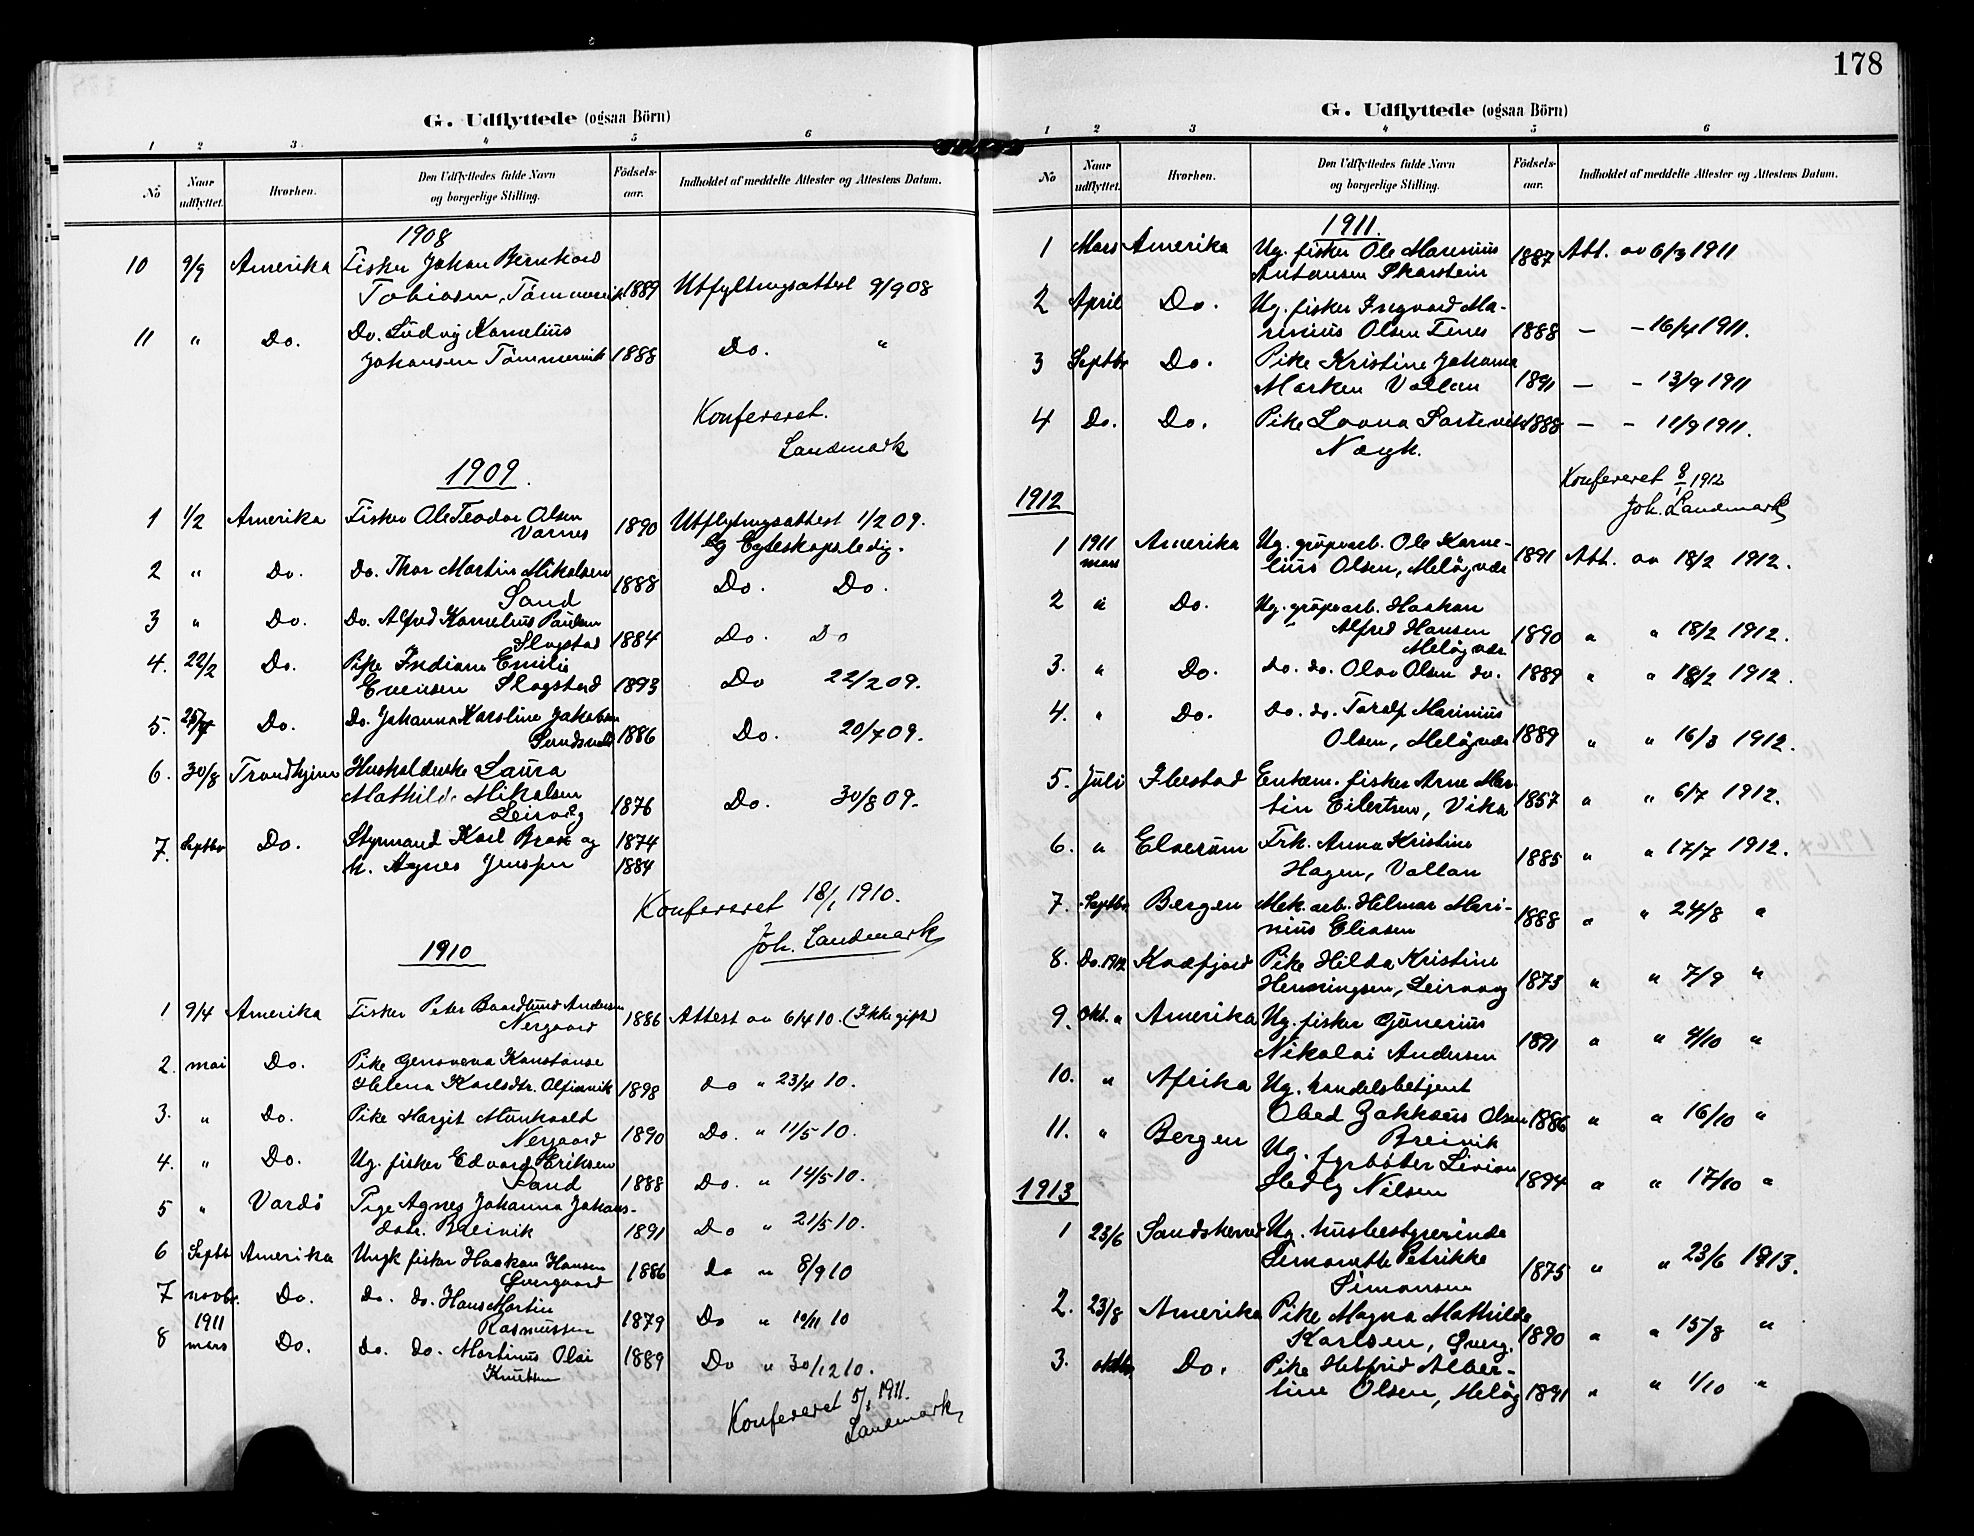 178
G. Udflyttede (ogsaa Börn)
1 2 3 4 5 6
No Naar udflyttet. Hvorhen. Den Udflyttedes fulde Navn og borgerlige Stilling. Födsels-aar. Indholdet af meddelte Attester og Attestens Datum.
1908
10 9/9 Amerika Fisker Johan Bernhard
Tobiasen, Tömmervik 1889 Utflytngsattest 9/9 08
11 " Do. Do. Ludvig Kornelius
Johansen Tömmervik 1888 Do. "
Konfereret.
Landmark
1909.
1 1/2 Amerika Fisker Ole Teodor Olsen
Varnes 1890 Utflytngsattest 1/2 09.
og Egteskapsledig.
2 " Do. Do. Thor Martin Mikalsen
Sand 1888 Do. Do.
3 " Do. Do. Alfred Kornelius Paulsen
Slogstad 1884 Do. Do
4. 22/2 Do. Pike Indiane Emilie
Evensen Slogstad 1893 Do 22/2 09.
5. Do. Do. Johanna Karoline Jakobsen
1886 Do. 20/7 09.
6. 30/8 Trondhjem Husholderske Laura
Mathilde Mikalsen
Leirvåg 1876 Do. 30/8 09.
7. Septbr Do. Styrmand Karl Brox og 1874
h. Agnes Jenssen 1884
Konfereret 18/1 1910.
Joh. Landmark
1910
1 9/4 Amerika Fisker Peter Baardlund Andersen
Nergaard 1886 Attest av 6/4 10. (Ikke gift)
2. mai Do. Pike Genoveva Konstanse
Helena Karlsdtr. 1898 do " 23/4 10.
3. " Do. Pike Margit Munkvold
Nergaard 1890 Do. " 11/5 10.
4. " Do. Ug. fisker Edvard Eriksen
Sand 1888 Do. " 14/5 10.
5 " Vardö Pige Agnes Johanna Johans-
datr. Breivik 1891 Do " 21/5 10.
6 Septbr Amerika Ungk fisker Haakon Hansen
Övergaard 1886 do " 8/9 10
7 novbr. Do. do. do. Hans Martin
Rasmussen 1879 Do " 10/11 10
8 1911 mars Do. do. do. Martinus Olai
Knutsen 1889 Do " 30/12 10.
Konfereret 5/1 1911.
Landmark
G. Udflyttede (ogsaa Börn)
1 2 3 4 5 6
No Naar udflyttet. Hvorhen. Den Udflyttedes fulde Navn og borgerlige Stilling. Födsels-aar. Indholdet af meddelte Attester og Attestens Datum.
1911.
1 Mars Amerika Ug. fisker Ole Marinius
Antonsen Skarstein 1887 Att. av 6/3 1911
2 April Do. Ug. fisker Ingvard Ma-
rinius Olsen Fines 1888 — - 16/4 1911.
3 Septbr Do. Pike Kristine Johanna
Marken Vollan 1891 — - 13/9 1911
4 Do. Do. Pike Lovna 1888 — - 11/9 1911.
Konfereret 8/1 1912
Joh. Landmark
1912
1 1911 mars Amerika Ug. grüpearb. Ole Korne-
lius Olsen, Melöyvær 1891 Att. av 18/2 1912.
2 " Do. Ug. grüpearb. Haakon
Alfred Hansen
Melöyvær 1890 " " 18/2 1912.
3. " Do. do. do. Olav Olsen do. 1889 " " 18/2 1912.
4. " Do. Do. do. Toralf Marinius
Olsen, Melöyvær 1889 " " 16/3 1912.
5. Juli Ibestad Enkem. fisker Arne Mar-
tin Eilertsen, Vika 1857 " " 6/7 1912.
6. " Elverum Frk. Anna Kristine
Hagen, Vollan 1885 " " 17/7 1912.
7. Septbr Bergen Mek. arb. Helmar Mari-
nius Eliasen 1888 " " 24/8 "
8. Do. 1912 Kvæfjord Pike Hilda Kristine
Henningsen, Leirvaag 1873 " " 7/9 "
9. Okt. " Amerika Ug. fisker Günerius
Nikolai Andersen 1891 " " 4/10 "
10. " Afrika Ug. handelsbetjent
Obed Zakkæus Olsen 1886 " " 16/10 "
Breivik
11. " Bergen Ug. fyrböter Livion
Hedly Nilsen 1894 " " 17/10 "
1913
1 23/6 Sandskerved Ug. husbestyrerinde
Simonette Petrikke
Simonsen 1875 " " 23/6 1913.
2. 23/8 Amerika Pike Magna Mathilde
Karlsen, Överg. 1890 " " 15/8 "
3. oktbr Do. Pike Helfrid Alber-
tine Olsen, Melöy 1891 " " 1/10 "